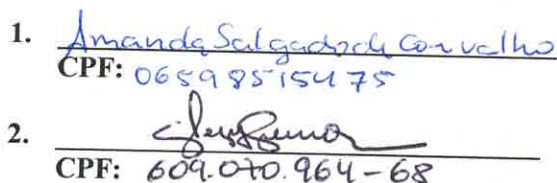 1. Amanda Salgado de Carvalho
CPF: 06598515475
2.
CPF: 609.070.964-68